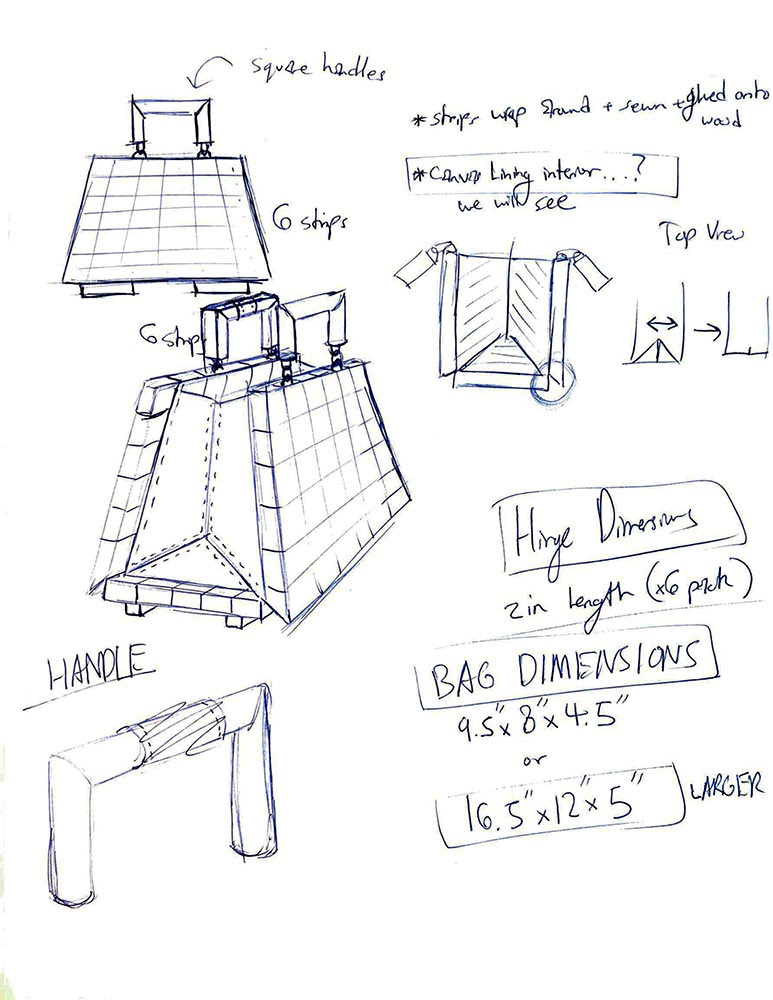 square handles
* strips wrap around + sewn + glued onto
wood
* Canvas Lining interior....?
we will see
6 strips
Top View
6 strips
Hinge Dimensions
2 in Length (x6 pack)
HANDLE
BAG DIMENSIONS
9.5" x 8" x 4.5"
or
16.5" x 12" x 5"
LARGER